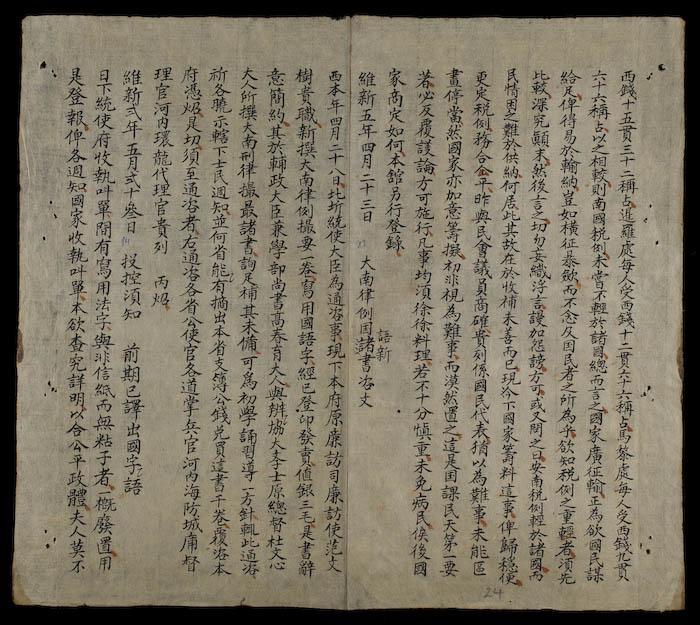 西錢十五貫三十二稱占暹羅處每人受西錢十二貫六十六稱占馬黎處每人受西錢九貫
六十六稱占以之相較則南國稅未嘗不輕於諸國總而言之國家廣征輸正為欲國民謀
給足俾得易於輸納豈如橫征暴斂而不念及国民者之所為乎欲知稅例之重輕者須先
比較深究顛末然後言之切勿妄織浮言謾加怨謗方可或又問之曰安南稅例輕於諸國而
民情困之難於供納何居此其故在於收補未善而已現今下國家籌料這事俾歸穩便
更定稅例務合公平昨與民會議員商確貴列係國民代表捎以為難事未能區
畫停當然國家亦加意籌擬初非視為難事而漠然置之這是囯課民天第一要
著必反覆議論方可施行凡事均須徐徐料理若不十分慎重未免病民俟後國
家商定如何本舘另行登錄
維新五年四月二十三日 大南律例囯語新書咨文
西本年四月二十八日北圻統使大臣為通咨事現下本府原廉訪司廉訪使范文
樹貴職新撰大南律例撮要一卷寫用國語字經已登印發賣值銀三毛是書辭
意簡約其於輔政大臣兼學部尚書高春育大人與辨協大李士原總督杜文心
大人所撰大南刑律撮最諸書詢足補其未備可為初學誦習導一方針輒此通咨
祈各曉示轄下士民週知並何省能有摘出本省支簿公錢兑買這書千卷覆咨本
府憑炤是切須至通咨者右通咨各省公使官各道掌兵官河内海防城庯督
理官河内環龍代理官貴列 丙炤
維新弍年五月弍十叁日 投控須知 前期已譯出國字語
日下統使府收執呌單間有寫用法字與非信紙而無粘子者一概廢置用
是登報俾各週知國家收執呌單本欲查究詳明以合公平政體夫人莫不
24